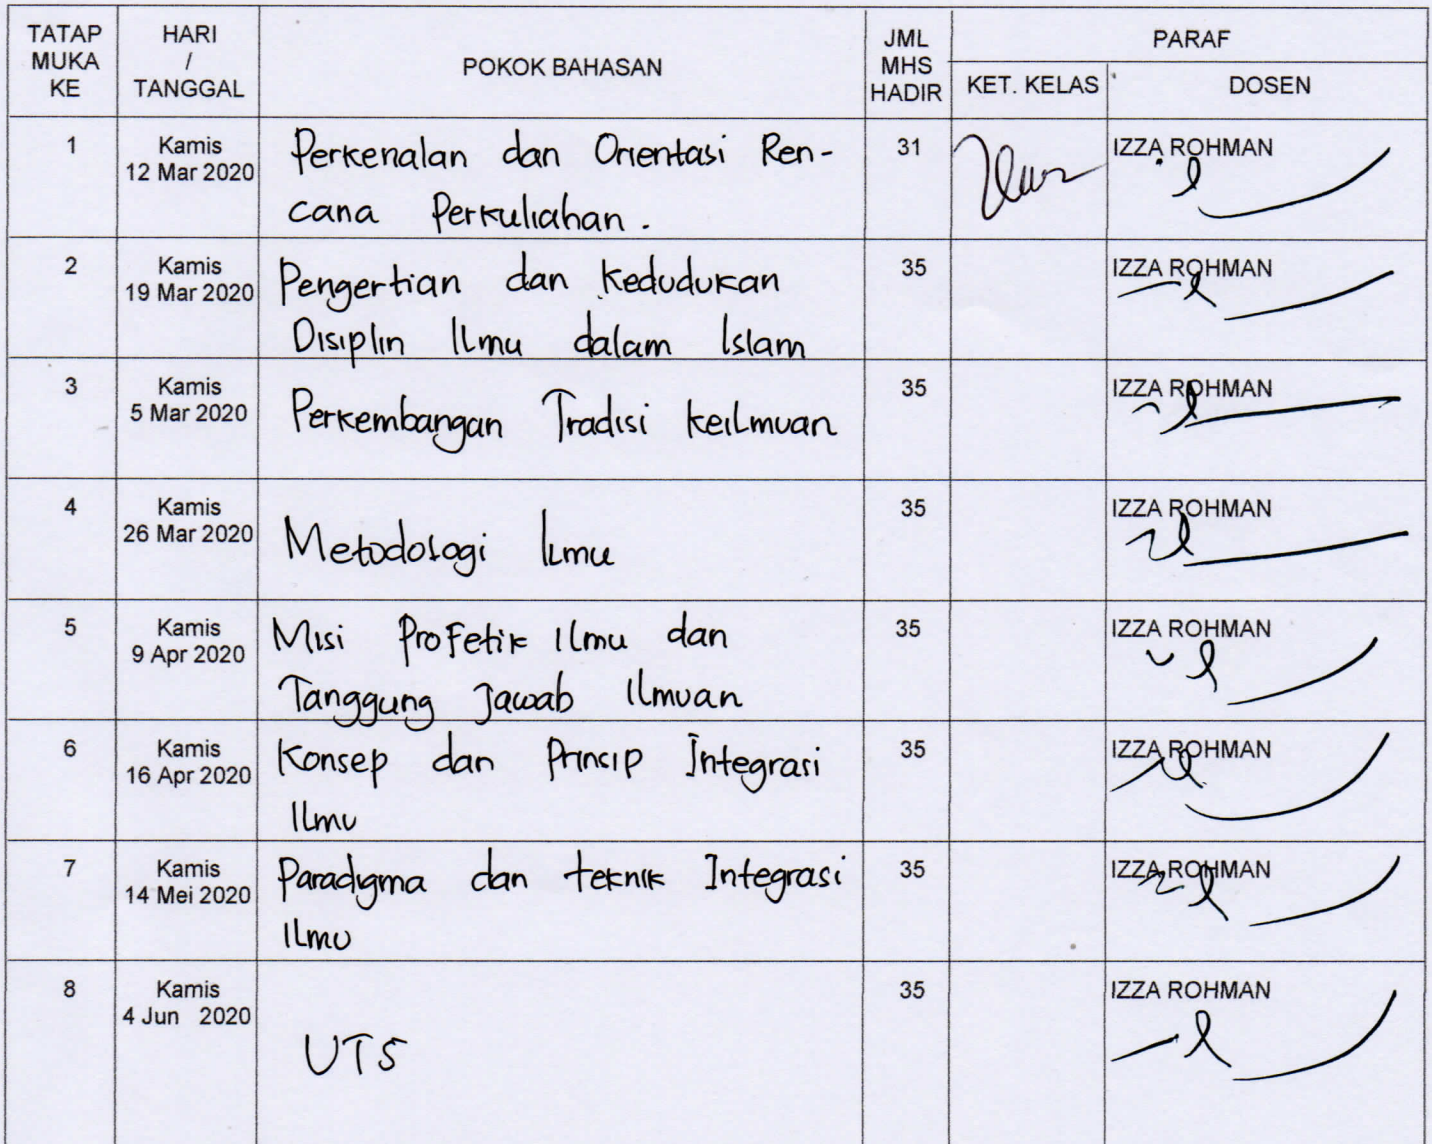 TATAP MUKA KE
HARI / TANGGAL
POKOK BAHASAN
JML MHS HADIR
PARAF
KET. KELAS
DOSEN
1
Kamis
12 Mar 2020
Perkenalan dan Orientasi Ren-
cana Perkuliahan.
31
IZZA ROHMAN
2
Kamis
19 Mar 2020
Pengertian dan Kedudukan
Disiplin Ilmu dalam Islam
35
IZZA ROHMAN
3
Kamis
5 Mar 2020
Perkembangan Tradisi keilmuan
35
IZZA ROHMAN
4
Kamis
26 Mar 2020
Metodologi Ilmu
35
IZZA ROHMAN
5
Kamis
9 Apr 2020
Misi Profetik Ilmu dan
Tanggung Jawab Ilmuan
35
IZZA ROHMAN
6
Kamis
16 Apr 2020
Konsep dan Prinsip Integrasi
Ilmu
35
IZZA ROHMAN
7
Kamis
14 Mei 2020
Paradigma dan teknik Integrasi
Ilmu
35
IZZA ROHMAN
8
Kamis
4 Jun 2020
UTS
35
IZZA ROHMAN